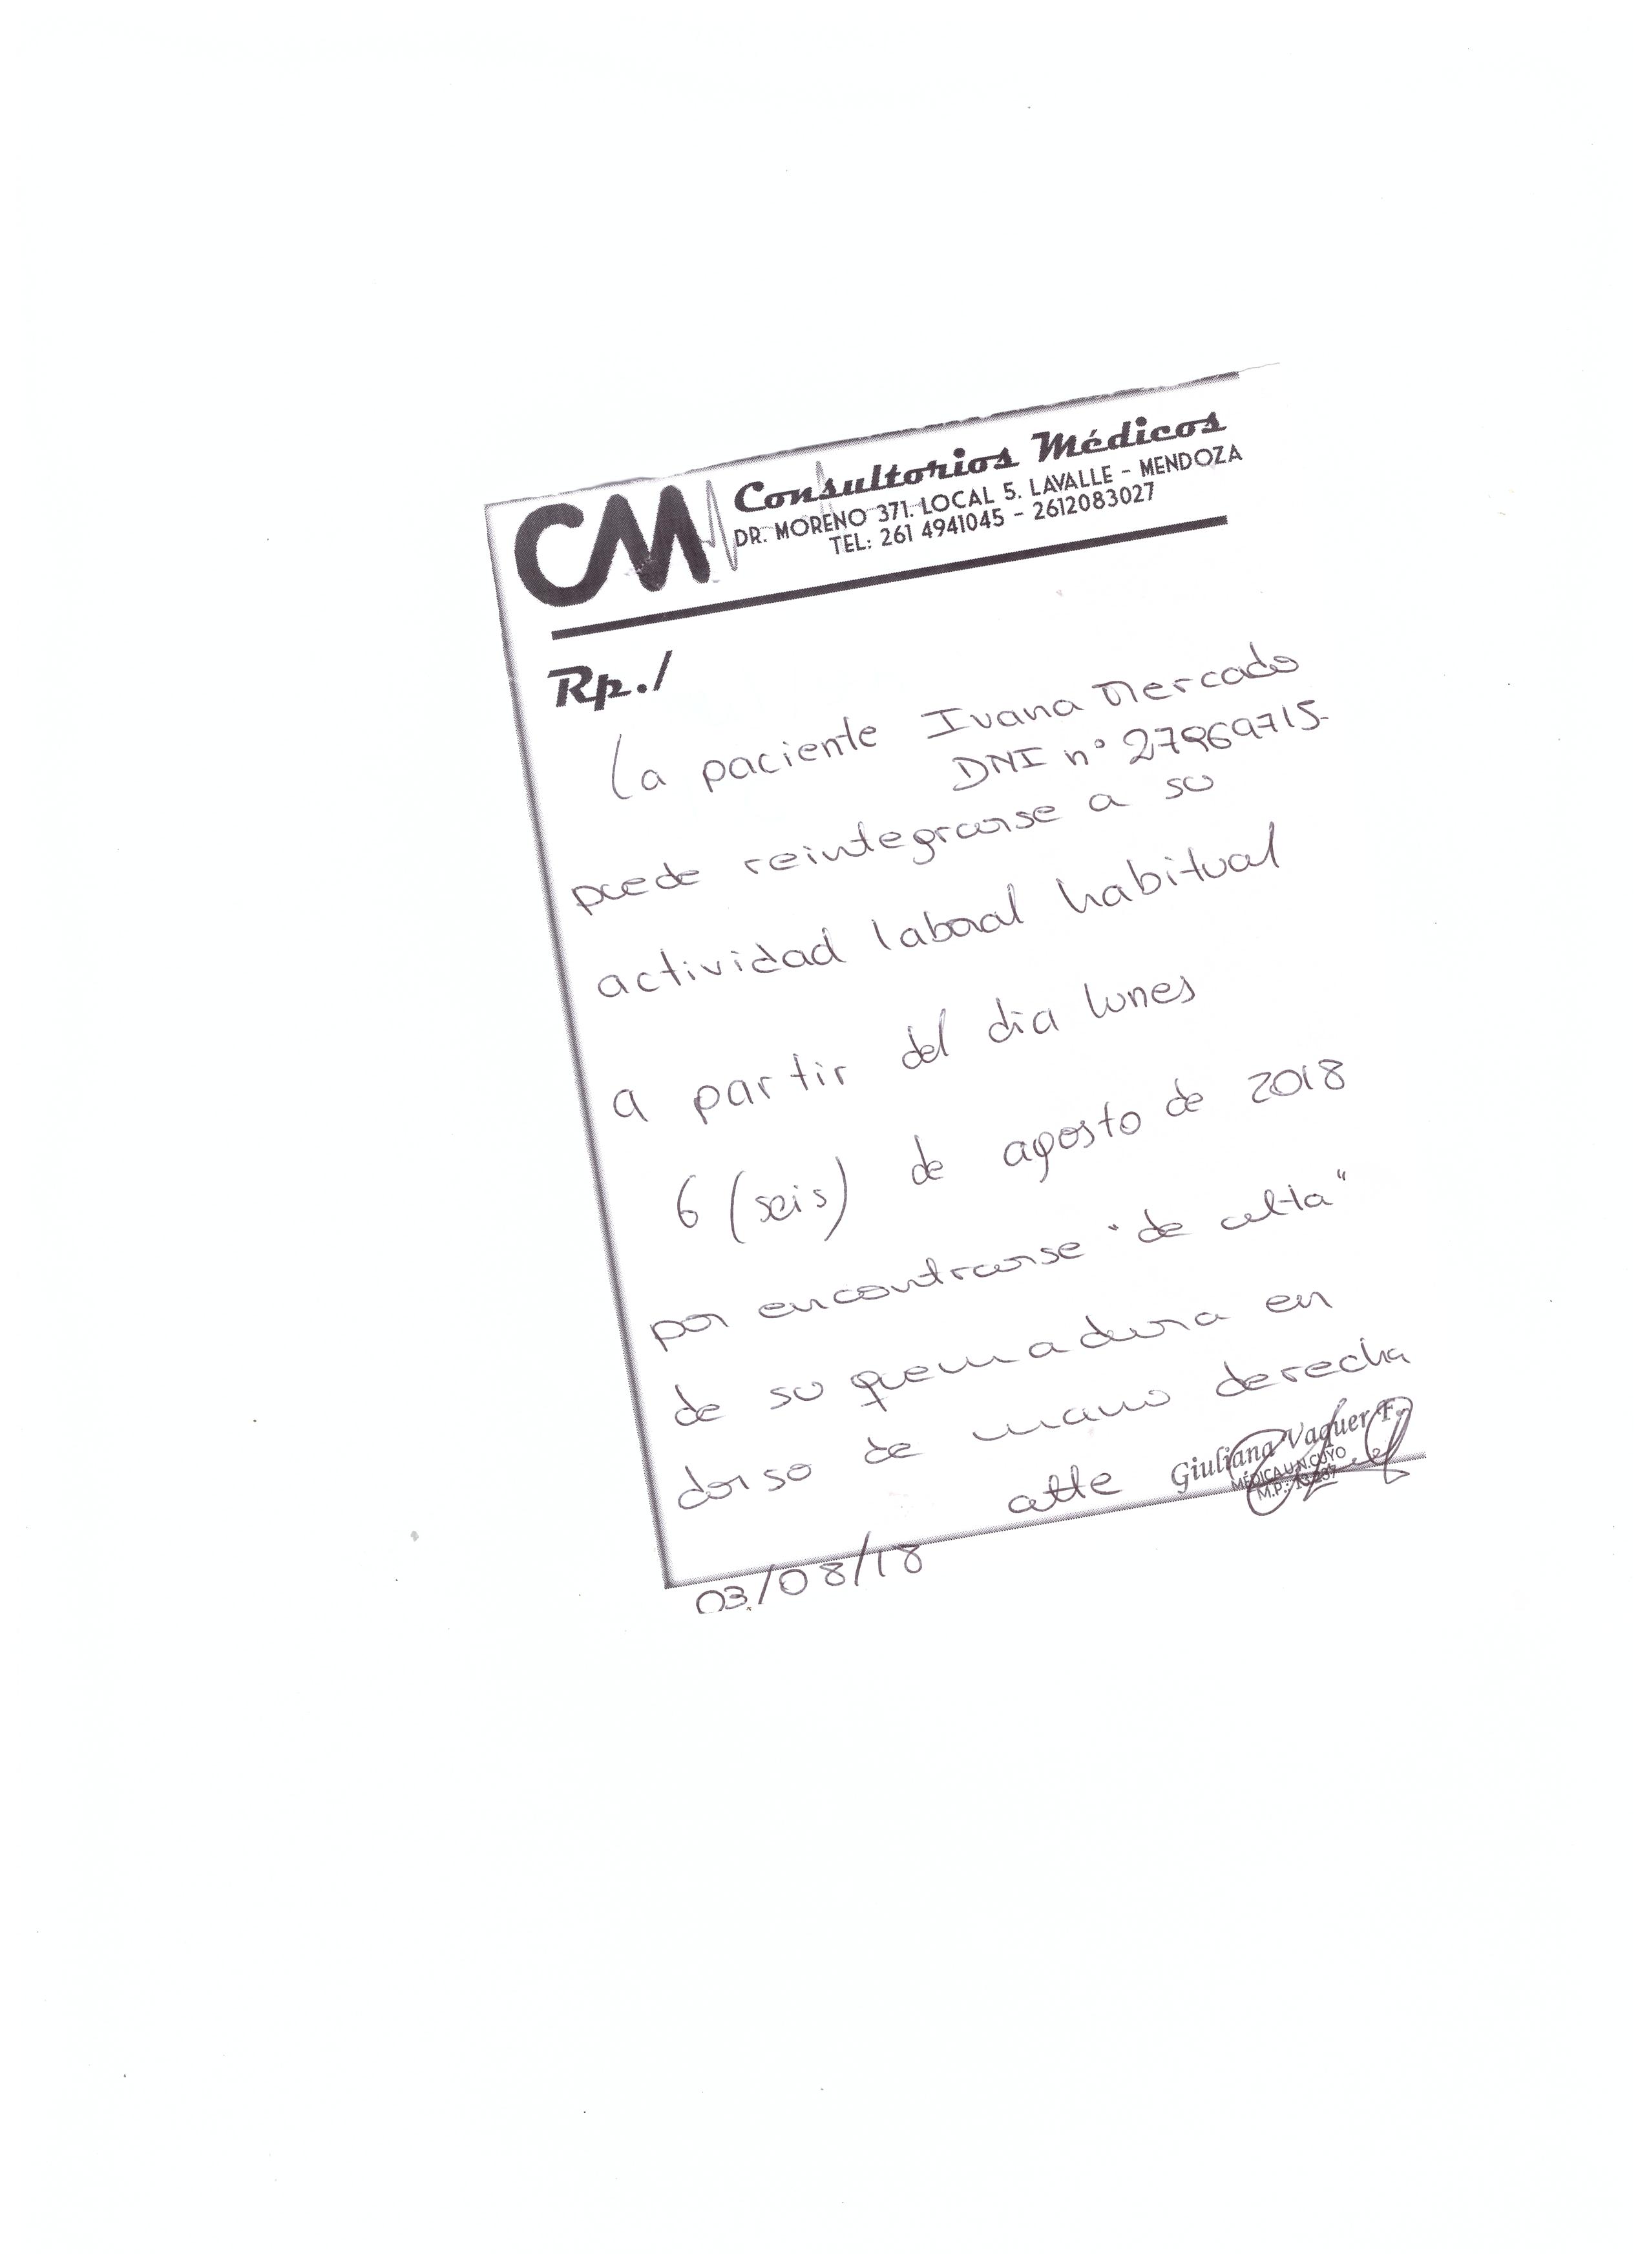 CM Consultorios Médicos
DR. MORENO 371. LOCAL 5. LAVALLE - MENDOZA
TEL: 261 4941045 - 2612083027
Rp./
La paciente Ivana Mercado
DNI n° 27969715-
puede reintegrarse a su
actividad laboral habitual
a partir del dia lunes
6 (seis) de agosto de 2018
por encontrarse "de alta"
de su quemadura en
dorso de mano derecha
atte
Giuliana Vaquer F.
MÉDICA U.N.CUYO
M.P.:
03/08/18